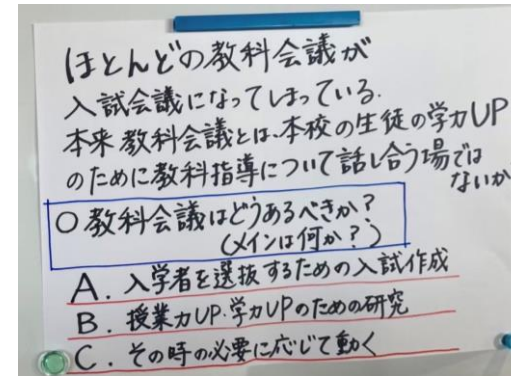 ほとんどの教科会議が
入試会議になってしまっている.
本来 教科会議とは、本校の生徒の学力UP
のために教科指導について話し合う場では
ないか
○教科会議はどうあるべきか?
(メインは何か?)
A. 入学者を選抜するための入試作成
B. 授業力UP・学力UPのための研究
C. その時の必要に応じて動く